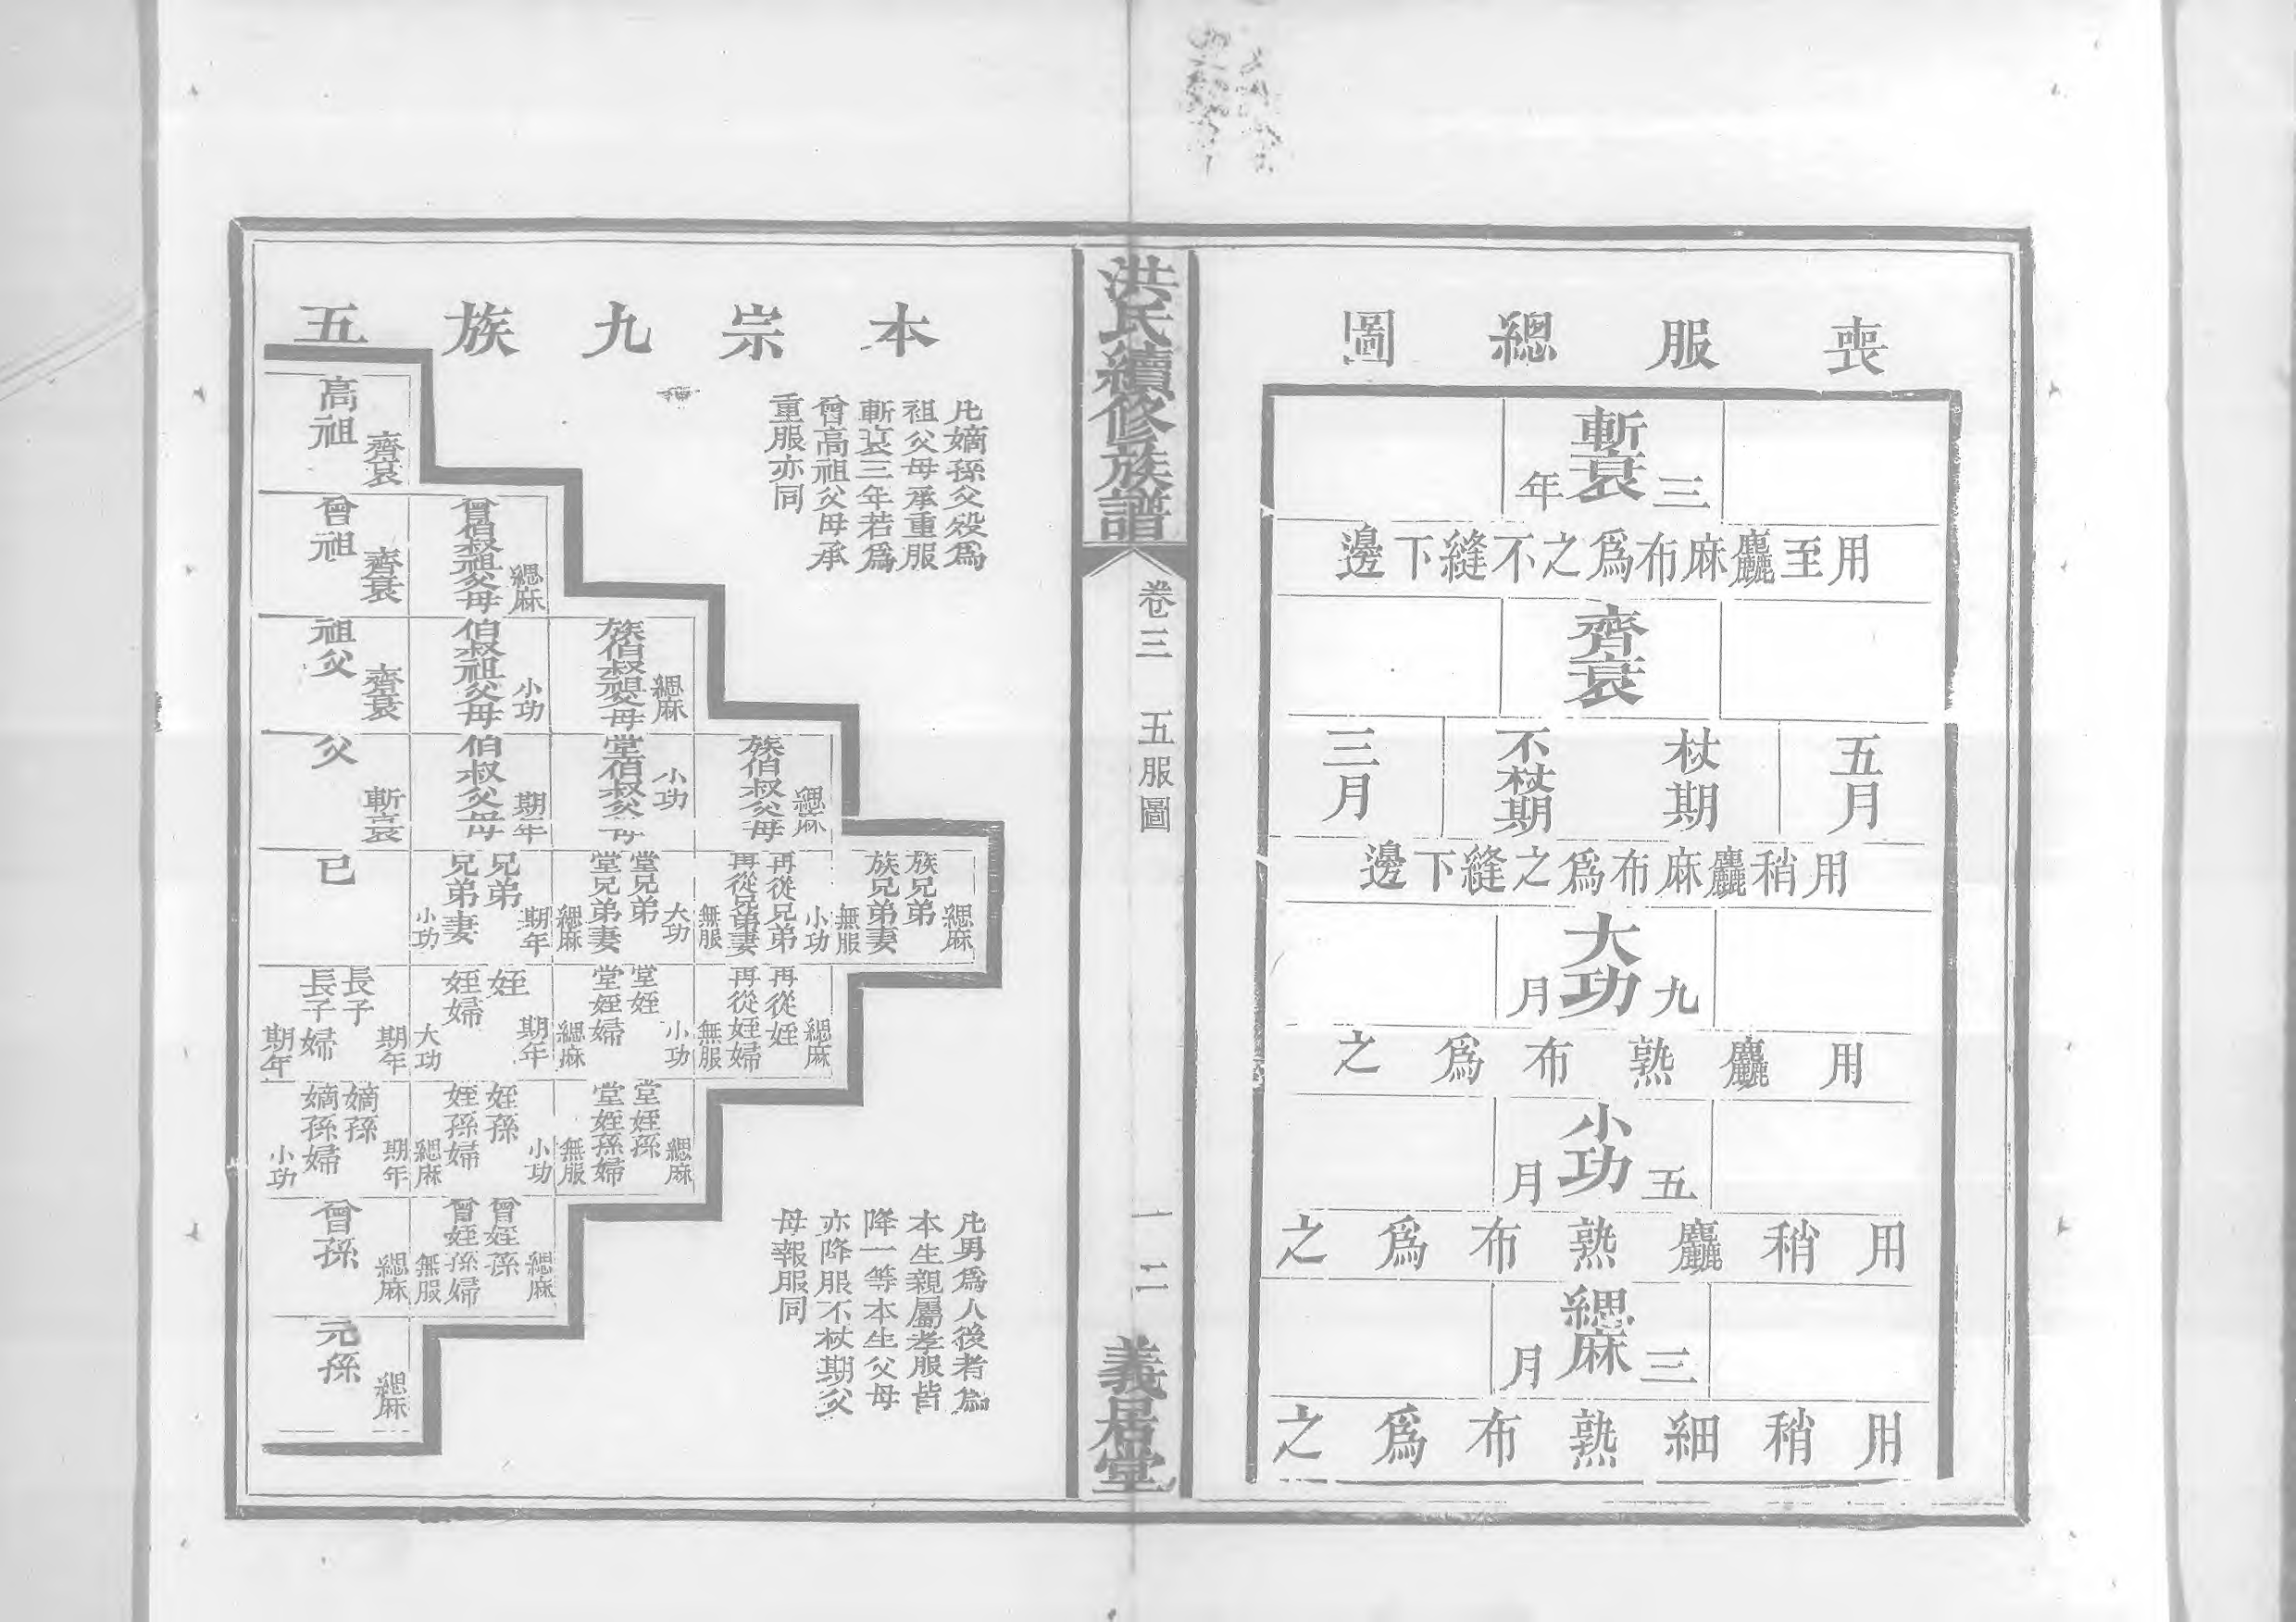 喪服總圖
斬衰三年
用至麤麻布爲之不縫下邊
齊衰
五月
杖期
不杖期
三月
用稍麤麻布爲之縫下邊
大功九月
用麤熟布爲之
小功五月
用稍麤熟布爲之
緦麻三月
用稍細熟布爲之
洪氏續修族譜
卷三 五服圖
一二
義居堂
本宗九族五
凡嫡孫父歿爲
祖父母承重服
斬衰三年若爲
曾高祖父母承
重服亦同
高祖 齊衰
曾伯叔祖父母 緦麻
曾祖 齊衰
族伯叔祖父母 緦麻
伯叔祖父母 小功
祖父 齊衰
族伯叔父母 緦麻
堂伯叔父母 小功
伯叔父母 期年
父 斬衰
族兄弟 緦麻
族兄弟妻 無服
再從兄弟 小功
再從兄弟妻 無服
堂兄弟 大功
堂兄弟妻 緦麻
兄弟 期年
兄弟妻 小功
已
再從姪 緦麻
再從姪婦 無服
堂姪 小功
堂姪婦 緦麻
姪 期年
姪婦 大功
長子 期年
長子婦 期年
堂姪孫 緦麻
堂姪孫婦 無服
姪孫 小功
姪孫婦 緦麻
嫡孫 期年
嫡孫婦 小功
曾姪孫 緦麻
曾姪孫婦 無服
曾孫 緦麻
元孫 緦麻
凡男爲人後者爲
本生親屬孝服皆
降一等本生父母
亦降服不杖期父
母報服同